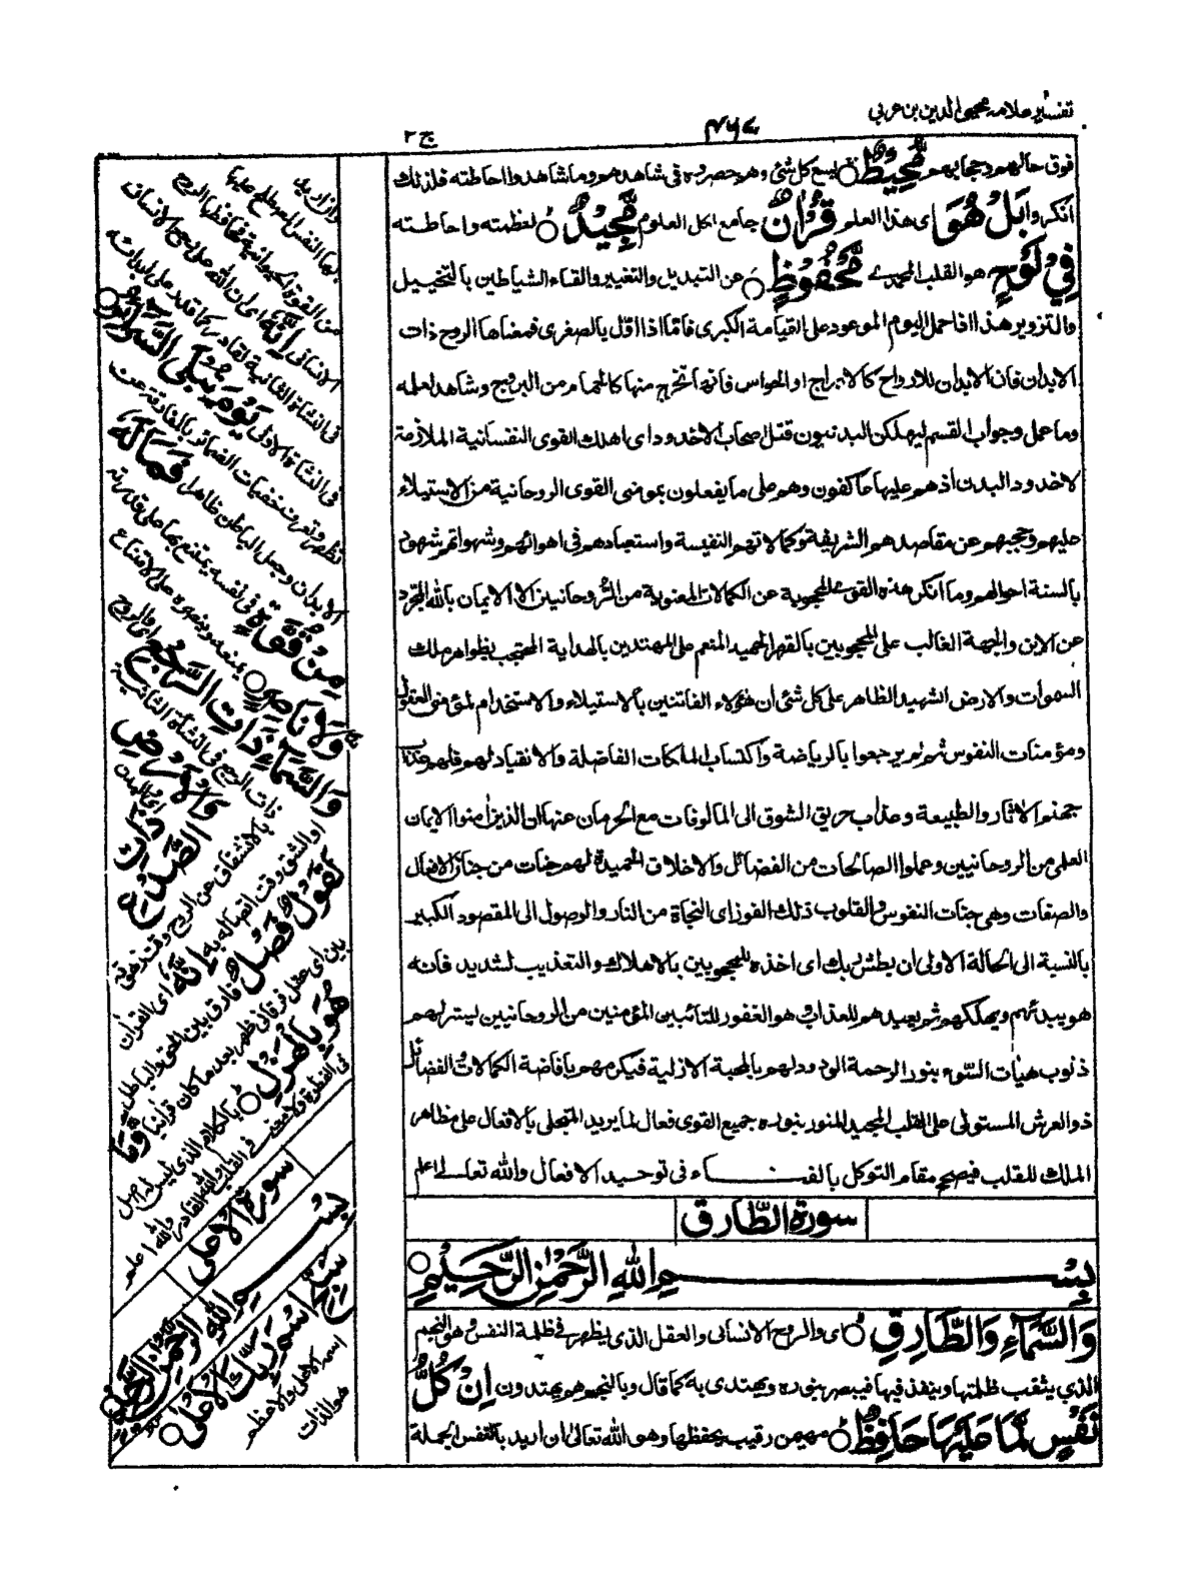 تفسير علامه محيى الدين بن عربى
٣٦٧
ج ٢
فوق حالهم وحجابهم مُّحِيطٌ يسع كل شئ وهو حصروه فى شاهدهم وما شاهدوا احاطته فلذلك
انكروا بَلْ هُوَ اى هذا العلم قُرْاٰنٌ جامع لكل العلوم مَّجِيْدٌ لعظمته واحاطته
فِيْ لَوْحٍ هو القلب المحمدى مَّحْفُوْظٍ عن التبديل والتغيير والقاء الشياطين بالتخييل
والتزوير هذا اذا حمل اليوم الموعود على القيامة الكبرى فاما اذا اول بالصغرى فمعناها الروح ذات
الابدان فان الابدان للارواح كالابراج او الحواس فانه اتخرج منها كالحمام من البروج وشاهد لعلمه
وما عمل وجواب القسم ليهلكن البدنيون قتل اصحاب الاخدود اى اهلك القوى النفسانية الملازمة
لاخدود البدن اذ هم عليها عاكفون وهم على ما يفعلون بمومنى القوى الروحانية من الاستيلاء
عليهم وحجبهم عن مقاصدهم الشريفة وكمالاتهم النفيسة واستعبادهم فى اهوائهم وشهواتهم شهود
بالسنة احوالهم وما انكر هذه القوى المحجوبة عن الكمالات المعنوية من الروحانيين الا الايمان بالله المجرد
عن الاين والجهة الغالب على المحجوبين بالقهر الحميد المنعم على المهتدين بالهداية المحتجب بظواهر ملك
السموات والارض الشهيد الظاهر على كل شئ ان هؤلاء الفاتنين بالاستيلاء والاستخدام لمؤمنى العقول
ومؤمنات النفوس ثم لم يرجعوا بالرياضة واكتساب الملكات الفاضلة والانقياد لهم فلهم عذاب
جهنم الاثار والطبيعة وعذاب حريق الشوق الى المالوفات مع الحرمان عنها ان الذين امنوا الايمان
العلمى من الروحانيين وعملوا الصالحات من الفضائل والاخلاق الحميدة لهم جنات من جنان الافعال
والصفات وهى جنات النفوس والقلوب ذلك الفوز اى النجاة من النار والوصول الى المقصود الكبير
بالنسبة الى الحالة الاولى ان بطش ربك اى اخذه للمحجوبين بالاهلاك والتعذيب لشديد فانه
هو يبدئهم ويهلكهم ثم يعيدهم للعذاب وهو الغفور للتائبين المؤمنين من الروحانيين ليستر لهم
ذنوب هيأت السوء بنور الرحمة الودود لهم بالمحبة الازلية فيكرمهم بافاضة الكمالات والفضائل
ذو العرش المستولى على القلب المجيد المنور بنوره جميع القوى فعال لما يريد المتجلى بالافعال على مظاهر
الملك للقلب فيصح مقام التوكل بالفناء فى توحيد الافعال والله تعالى اعلم
سورة الطارق
بِسْمِ اللهِ الرَّحْمٰنِ الرَّحِيْمِ
وَالسَّمَآءِ وَالطَّارِقِ اى والروح الانسانى والعقل الذى يظهر فى ظلمة النفس وهو النجم
الذى يثقب ظلمتها وينفذ فيها فيبصر بنوره ويهتدى به كما قال وبالنجم هم يهتدون اِنْ كُلُّ
نَفْسٍ لَّمَّا عَلَيْهَا حَافِظٌ مهيمن رقيب يحفظها وهو الله تعالى ان اريد بالنفس الجملة
وان اريد
بها النفس المصطلح عليها
من القوة الحيوانية فحافظها الروح
الانسانى اِنَّهٗ اى ان الله على رجع الانسان
فى النشأة الثانية لقادر كما قدر على ابدائه
فى النشأة الاولى يَوْمَ تُبْلَى السَّرَآئِرُ
تظهر وتعرف خفيات الضمائر بالمفارقة عن
الابدان وجعل الباطن ظاهرا فَمَا لَهٗ
مِنْ قُوَّةٍ فى نفسه يمتنع بها على قدرته
وَّلَا نَاصِرٍ يمنعه وينصره على الامتناع
وَالسَّمَآءِ ذَاتِ الرَّجْعِ اى والروح
ذات الرجع فى النشأة الثانية
وَالْاَرْضِ اى البدن
ذَاتِ الصَّدْعِ
بالانشقاق عن الروح وقت زهوقه
او الشق وقت اتصاله به اِنَّهٗ اى القرآن
لَقَوْلٌ فَصْلٌ فارق بين الحق والباطل
بين اى عقل فرقانى ظهر بعد ما كان قرآنيا وَّمَا
هُوَ بِالْهَزْلِ بالكلام الذى ليس له اصل
فى الفطرة ولا معنى فى القلب والله القادر والله اعلم
سورة الاعلى
بِسْمِ اللهِ الرَّحْمٰنِ الرَّحِيْمِ
سَبِّحِ اسْمَ رَبِّكَ الْاَعْلَى
اسمه الاعلى والاعظم
هو الذات